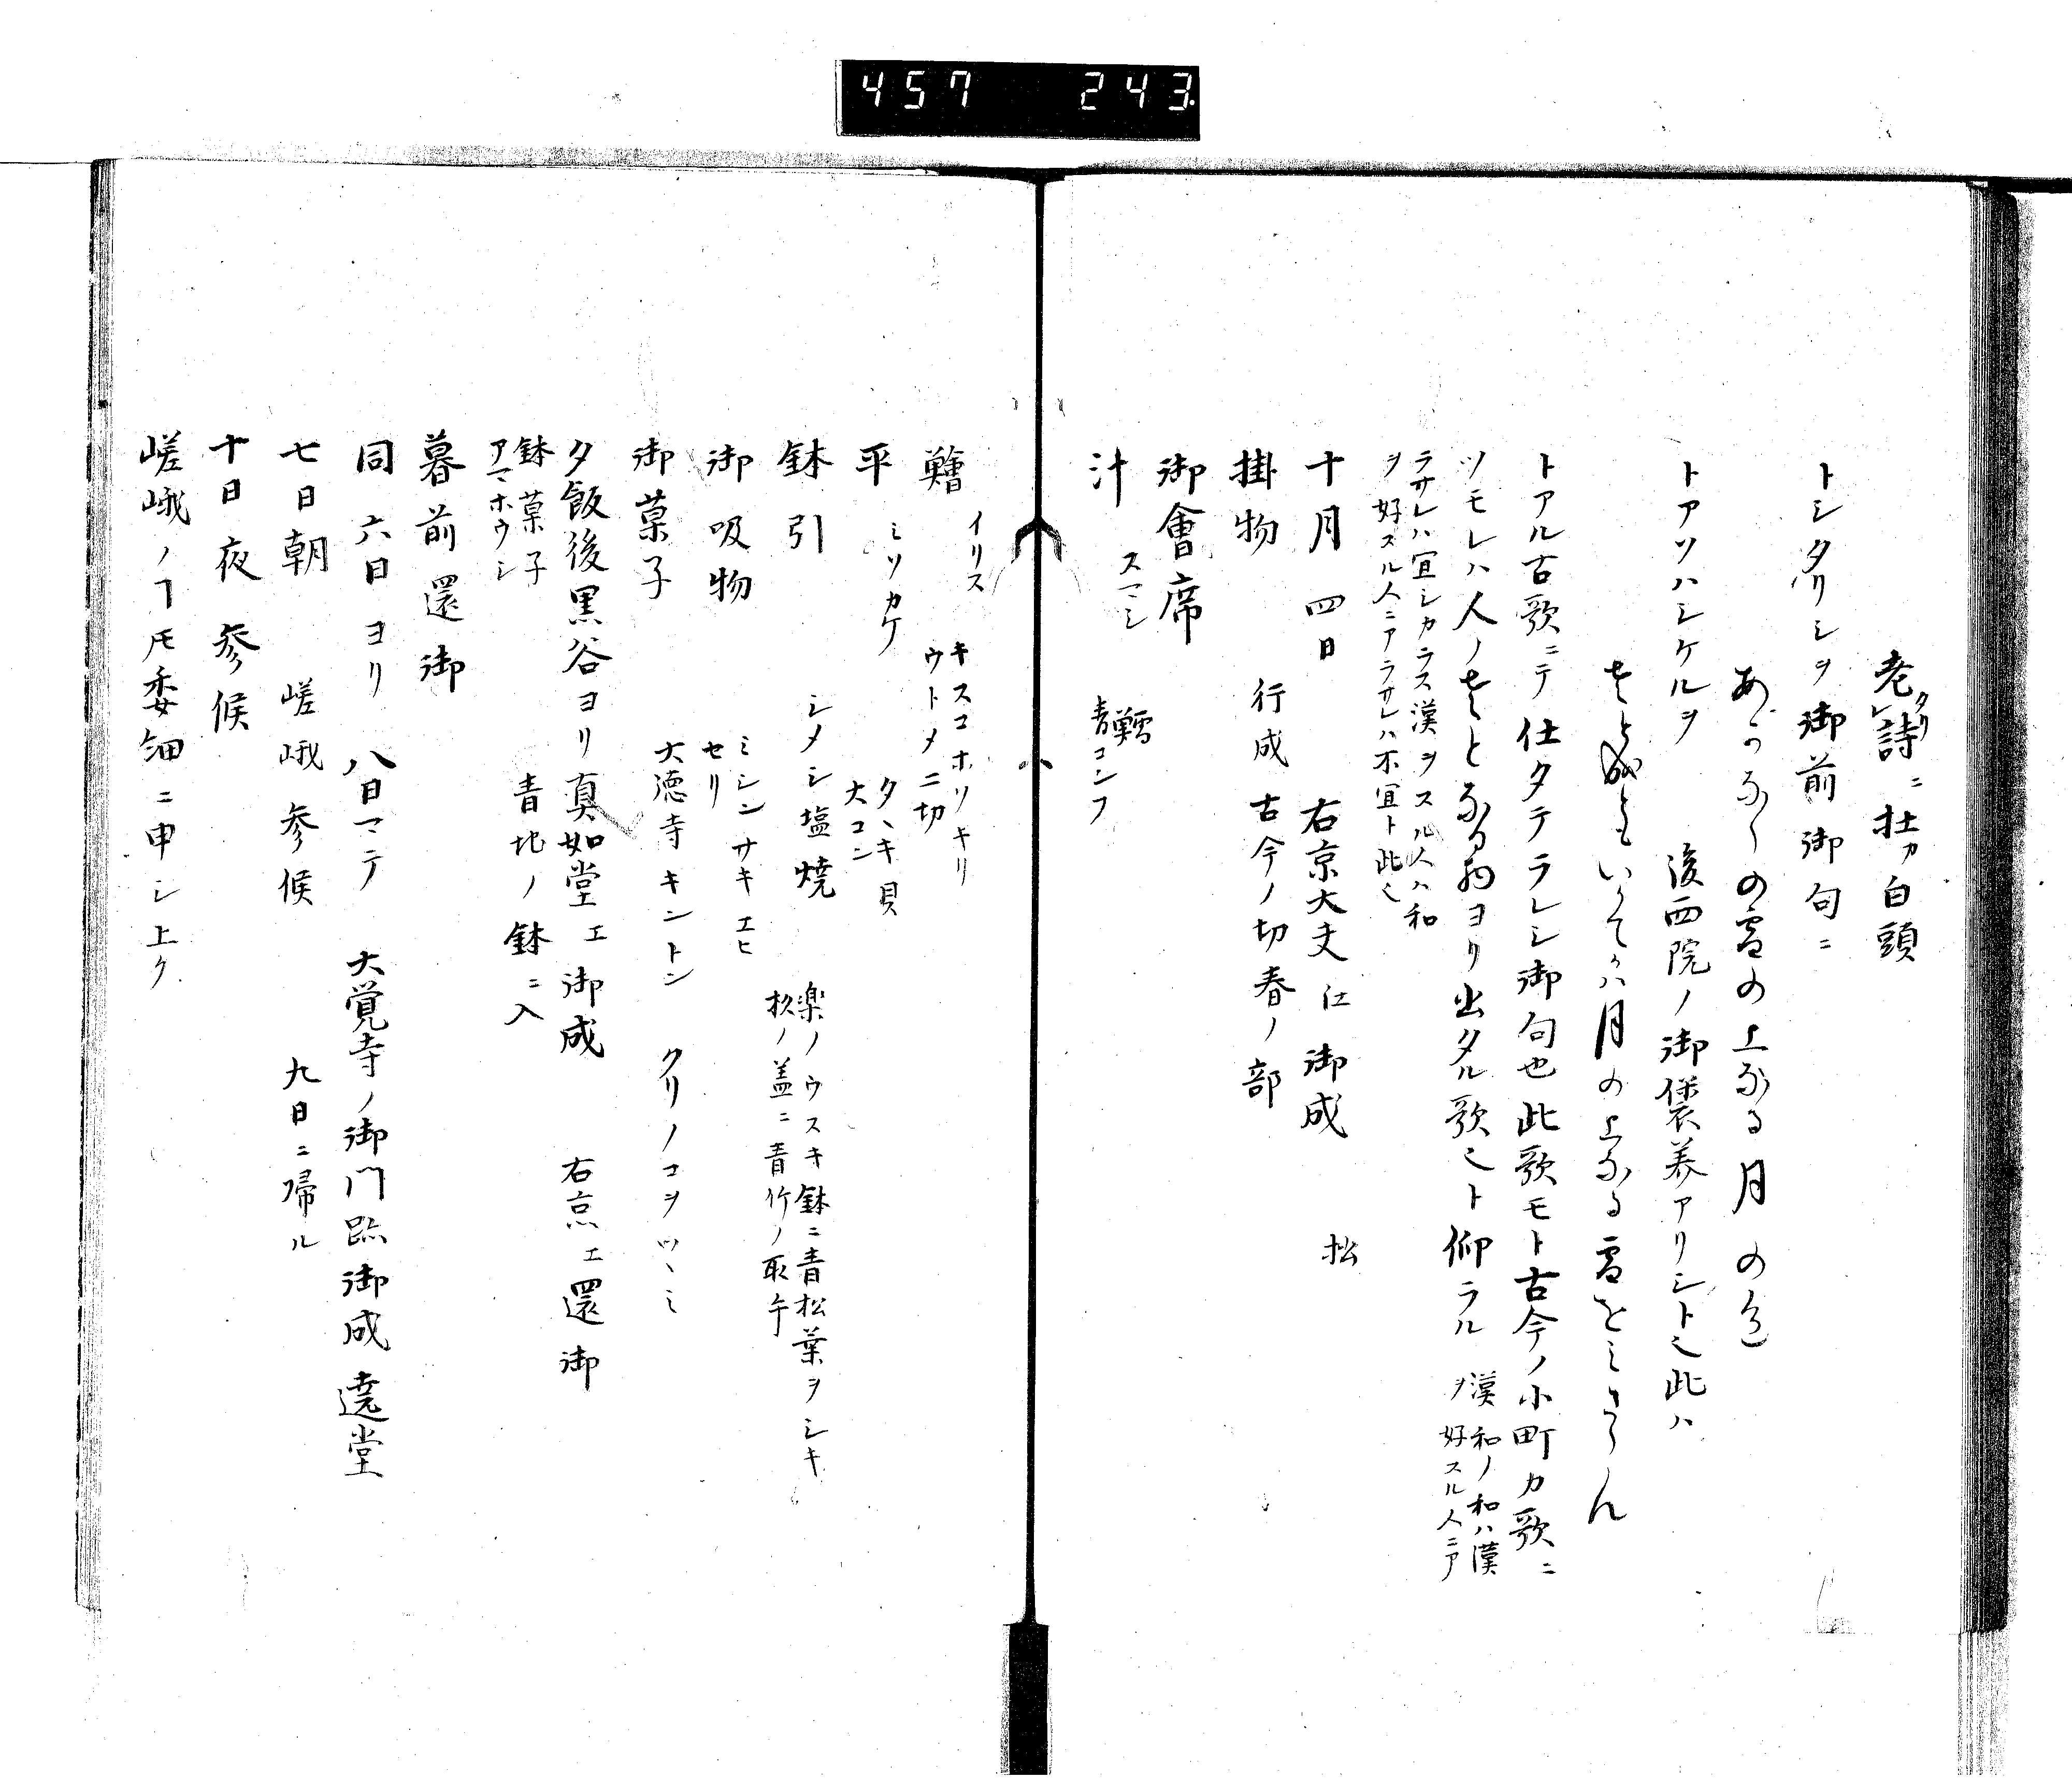 457 243.
老タリ詩ニ杜カ白頭
トシタリシヲ御前御句ニ
あつまの雪の上なる月の色
トアソハシケルヲ 後西院ノ御褒美アリシト也此ハ
老と成ともいかてかハ月の上なる雪をミさらん
トアル古歌ニテ仕タテラレシ御句也此歌モト古今ノ小町カ歌ニ
ツモレハ人ノ老となる物ヨリ出タル歌也ト仰ラル 漢和ノ和ハ漢
ヲ好スル人ニア
ラサレハ宜シカラス漢ヲスル人ハ和
ヲ好スル人ニアラサレハ不宜ト此也
十月四日 右京大夫江御成 松
掛物 行成古今ノ切春ノ部
御會席
汁 スマシ 雪
青コンフ
鱠 イリス キスコホソキリ
ウトメ二切
平 ミソカケ タヽキ貝
大コン
鉢引 シメシ塩焼 楽ノウスキ鉢ニ青松葉ヲシキ
杉ノ盖ニ青竹ノ取午
御吸物 ミシンサキエヒ
セリ
御菓子 大徳寺キントン クリノコヲツヽミ
夕飯後黒谷ヨリ真如堂エ御成 右京エ還御
鉢菓子
アマホウシ 青地ノ鉢ニ入
暮前還御
同六日ヨリ八日マテ 大覚寺ノ御門跡御成遶堂
七日朝 嵯峨参候 九日ニ帰ル
十日夜参候
嵯峨ノヿ尼委細ニ申シ上ク